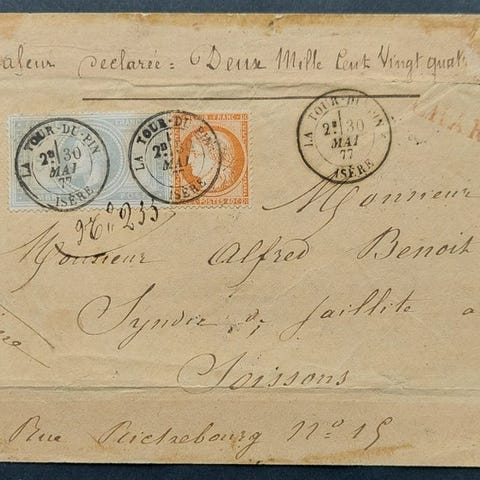 Valeur declarée = Deux Mille Cent Vingt quatre
CHAR
LA TOUR-DU-PIN
2E 30
MAI
77
ISÈRE
LA TOUR-DU-PIN
2E
MAI
77
ISÈRE
FRANC
POSTES 40 C
LA TOUR-DU-PIN
2E 30
MAI
77
ISÈRE
No 255
Monsieur
Monsieur Alfred Benoit
Syndic de faillite a
Soissons
Rue Richebourg No 15